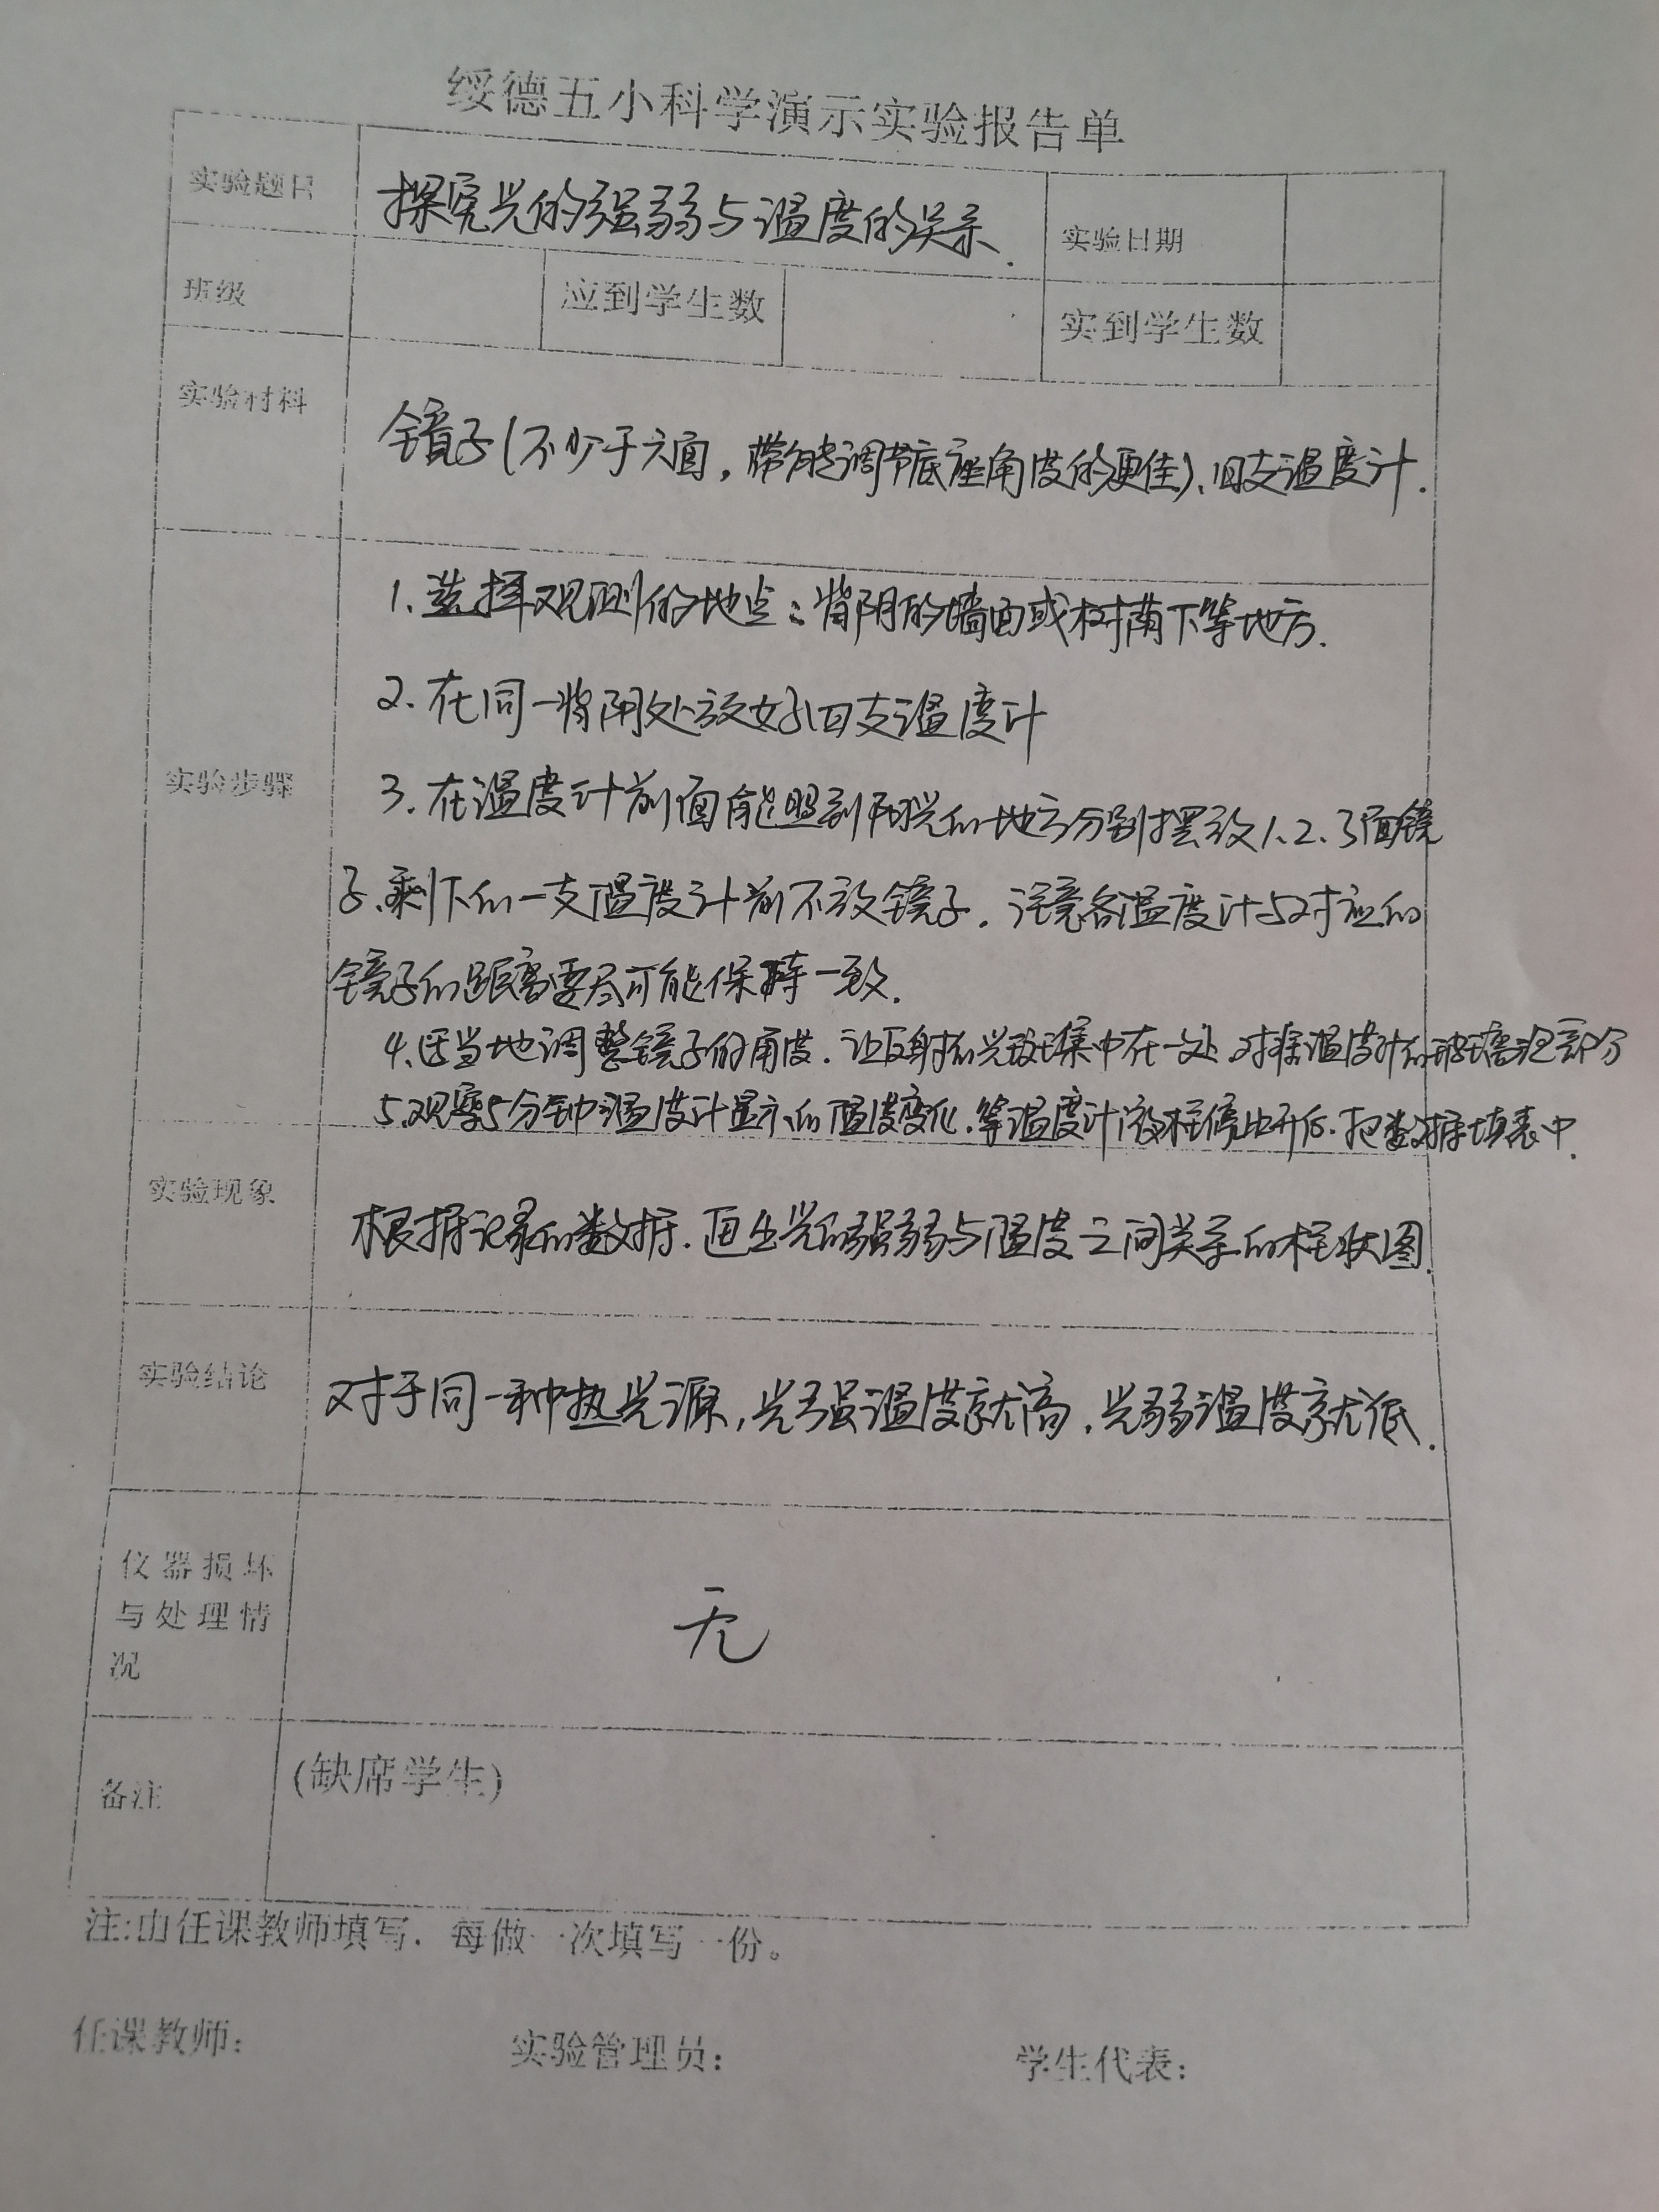 绥德五小科学演示实验报告单
实验题目 探究光的强弱与温度的关系. 实验日期
班级 应到学生数 实到学生数
实验材料 镜子(不少于六面,带能调节底座角度的更佳)、四支温度计.
1.选择观测的地点:背阴的墙面或树荫下等地方.
2.在同一背阴处放好四支温度计
实验步骤 3.在温度计前面能照到阳光的地方分别摆放1、2、3面镜
子.剩下的一支温度计前不放镜子.注意各温度计与对应的
镜子的距离要尽可能保持一致.
4.适当地调整镜子的角度.让反射的光线集中在一处.对准温度计的玻璃泡部分
5.观察5分钟温度计显示的温度变化.等温度计液柱停止升后.把数据填表中.
实验现象 根据记录的数据.画出光的强弱与温度之间关系的柱状图.
实验结论 对于同一种热光源,光强温度就高,光弱温度就低.
仪器损坏
与处理情
况
无
备注 (缺席学生)
注:由任课教师填写.每做一次填写一份。
任课教师: 实验管理员: 学生代表: